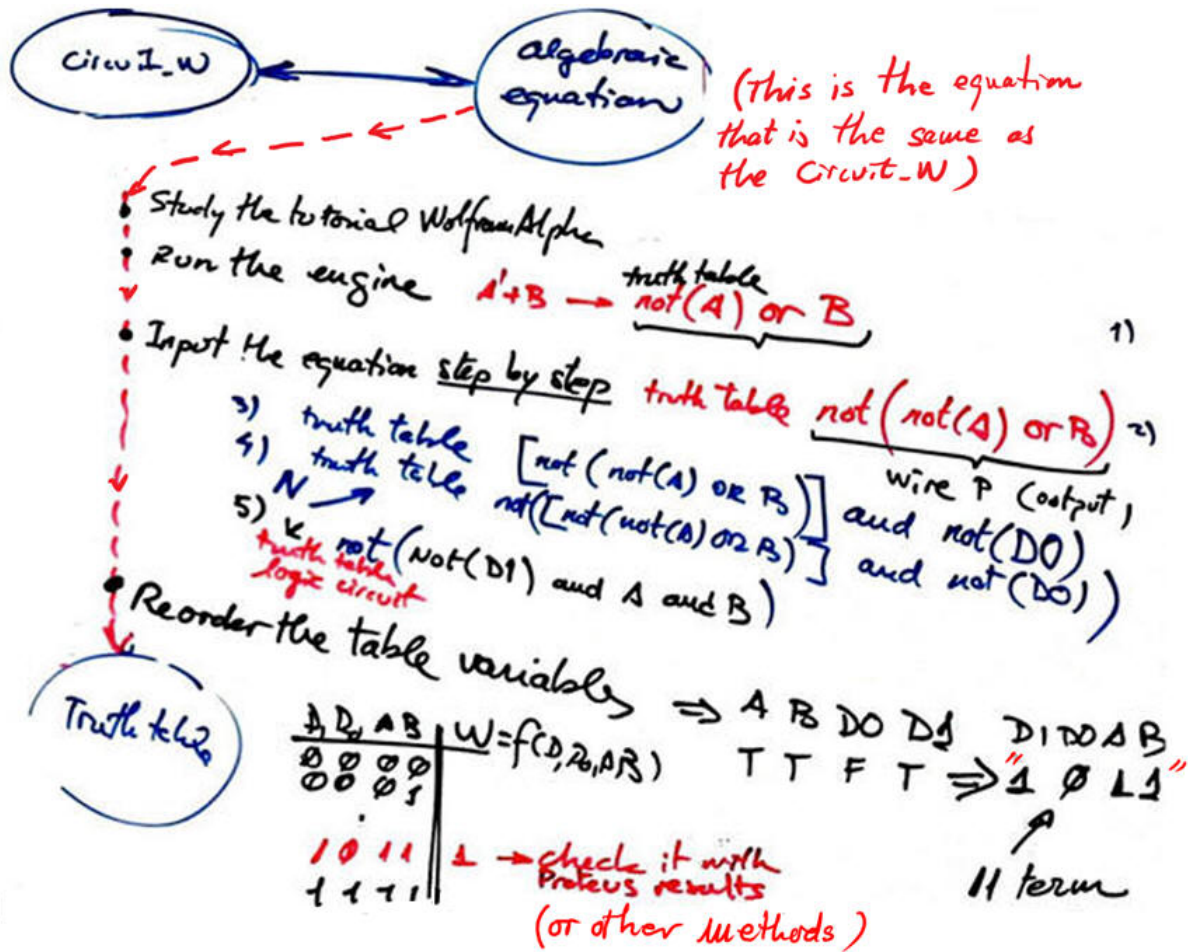 CircuI_W
algebraic
equation
(This is the equation
that is the same as
the Circuit_W)
• Study the tutorial WolframAlpha
• Run the engine A'+B → truth table not(A) or B 1)
• Input the equation step by step truth table not(not(A) or B) 2)
wire P (output)
3) truth table [not(not(A) or B)] and not(D0)
4) truth table not([not(not(A) or B)] and not(D0))
N
5) not(Not(D1) and A and B)
truth table
logic circuit
• Reorder the table variables ⇒ A B D0 D1 D1 D0 A B
T T F T ⇒ "1 0 1 1"
11 term
Truth table
D1 D0 A B W=f(D1,D0,A,B)
0 0 0 0
0 0 0 1
.
1 0 1 1 1 → check it with
Proteus results
1 1 1 1
(or other methods)